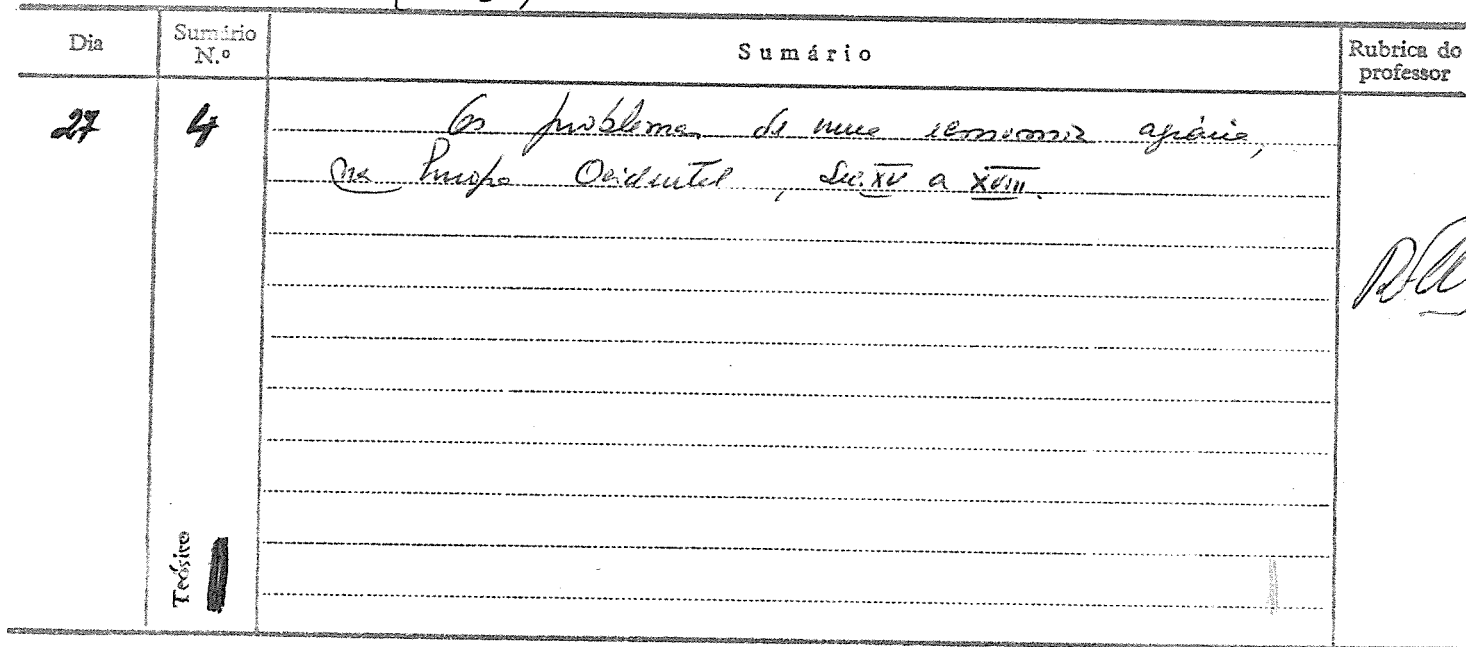 Dia
Sumário
N.º
Sumário
Rubrica do
professor
27
4
Os problemas de uma economia agrária,
na Europa Ocidental, Séc. XV a XVIII.
Teórico